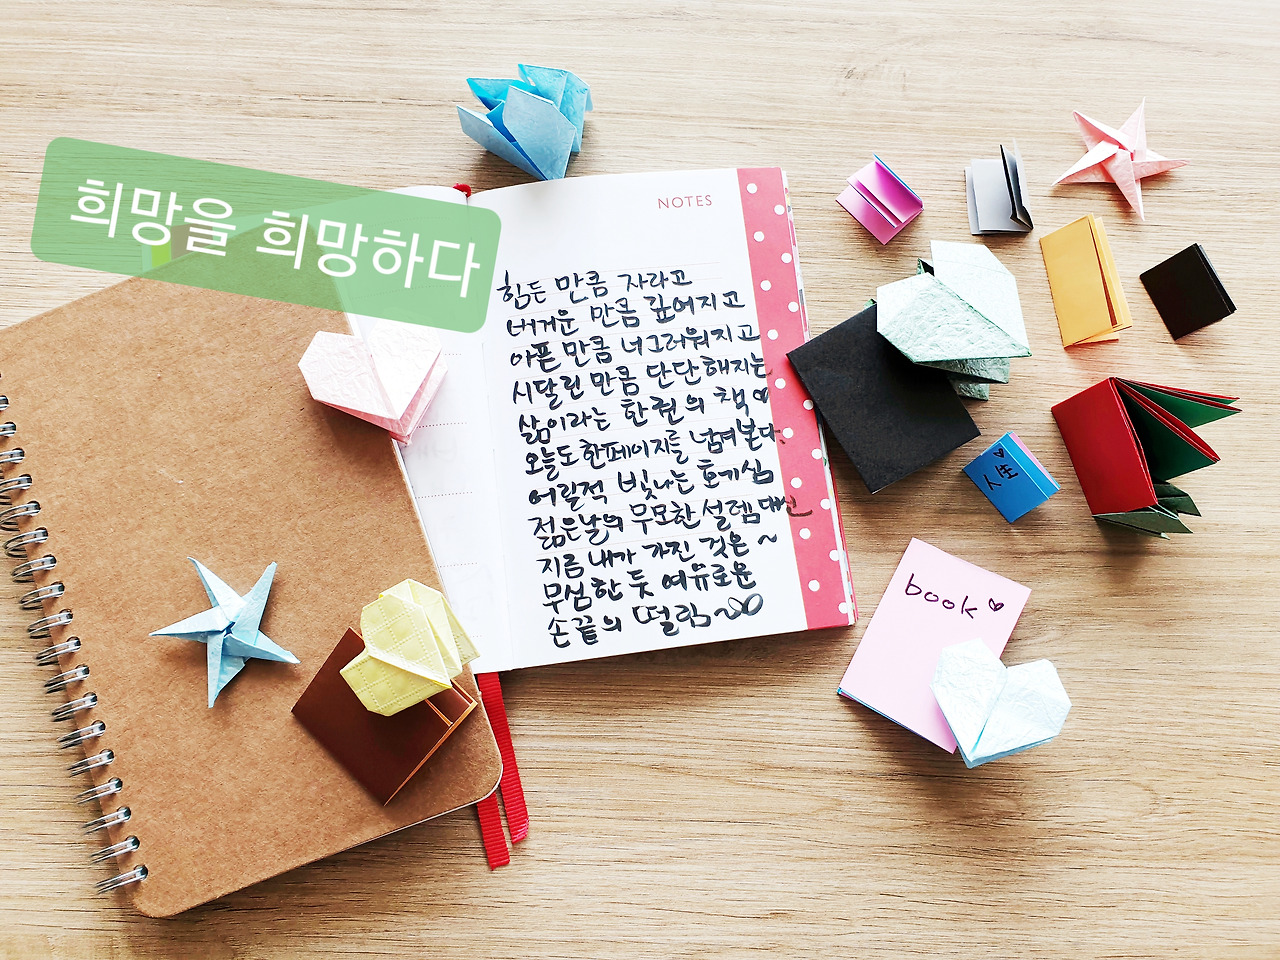 희망을 희망하다
NOTES
힘든 만큼 자라고
버거운 만큼 깊어지고
아픈 만큼 너그러워지고
시달린 만큼 단단해지는
삶이라는 한 권의 책
오늘도 한페이지를 넘겨본다.
어릴적 빛나는 호기심
젊은날의 무모한 설렘대신
지금 내가 가진 것은 ~
무심한 듯 여유로운
손끝의 떨림~
人生
book